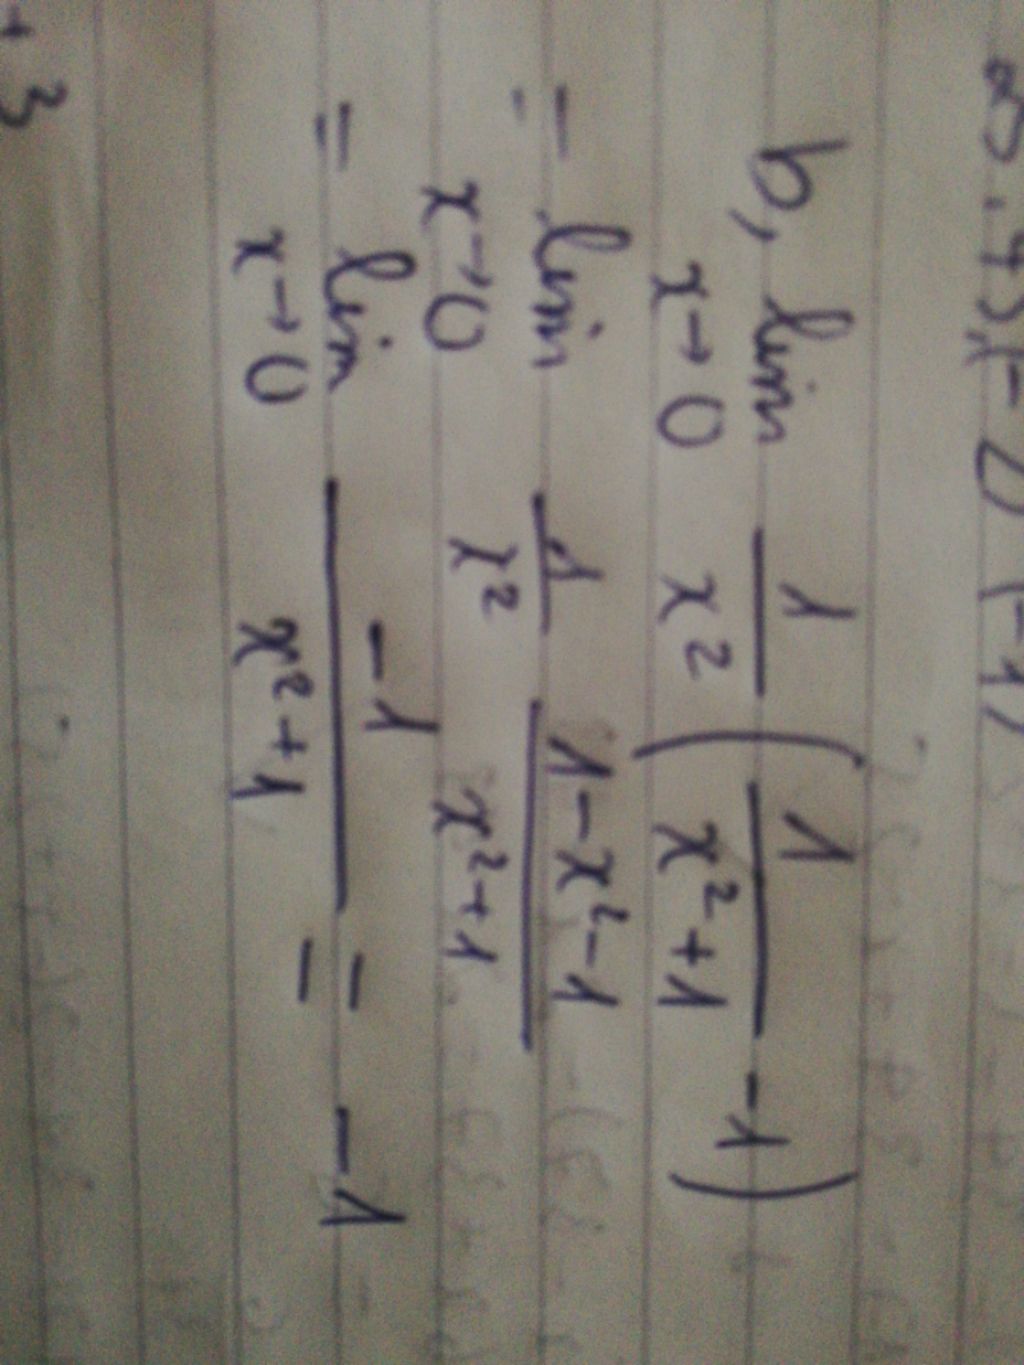 b, lim x→0 1/x² (1/(x²+1) - 1)
= lim x→0 1/x² (1-x²-1)/(x²+1)
= lim x→0 -1/(x²+1) = -1
+ 3